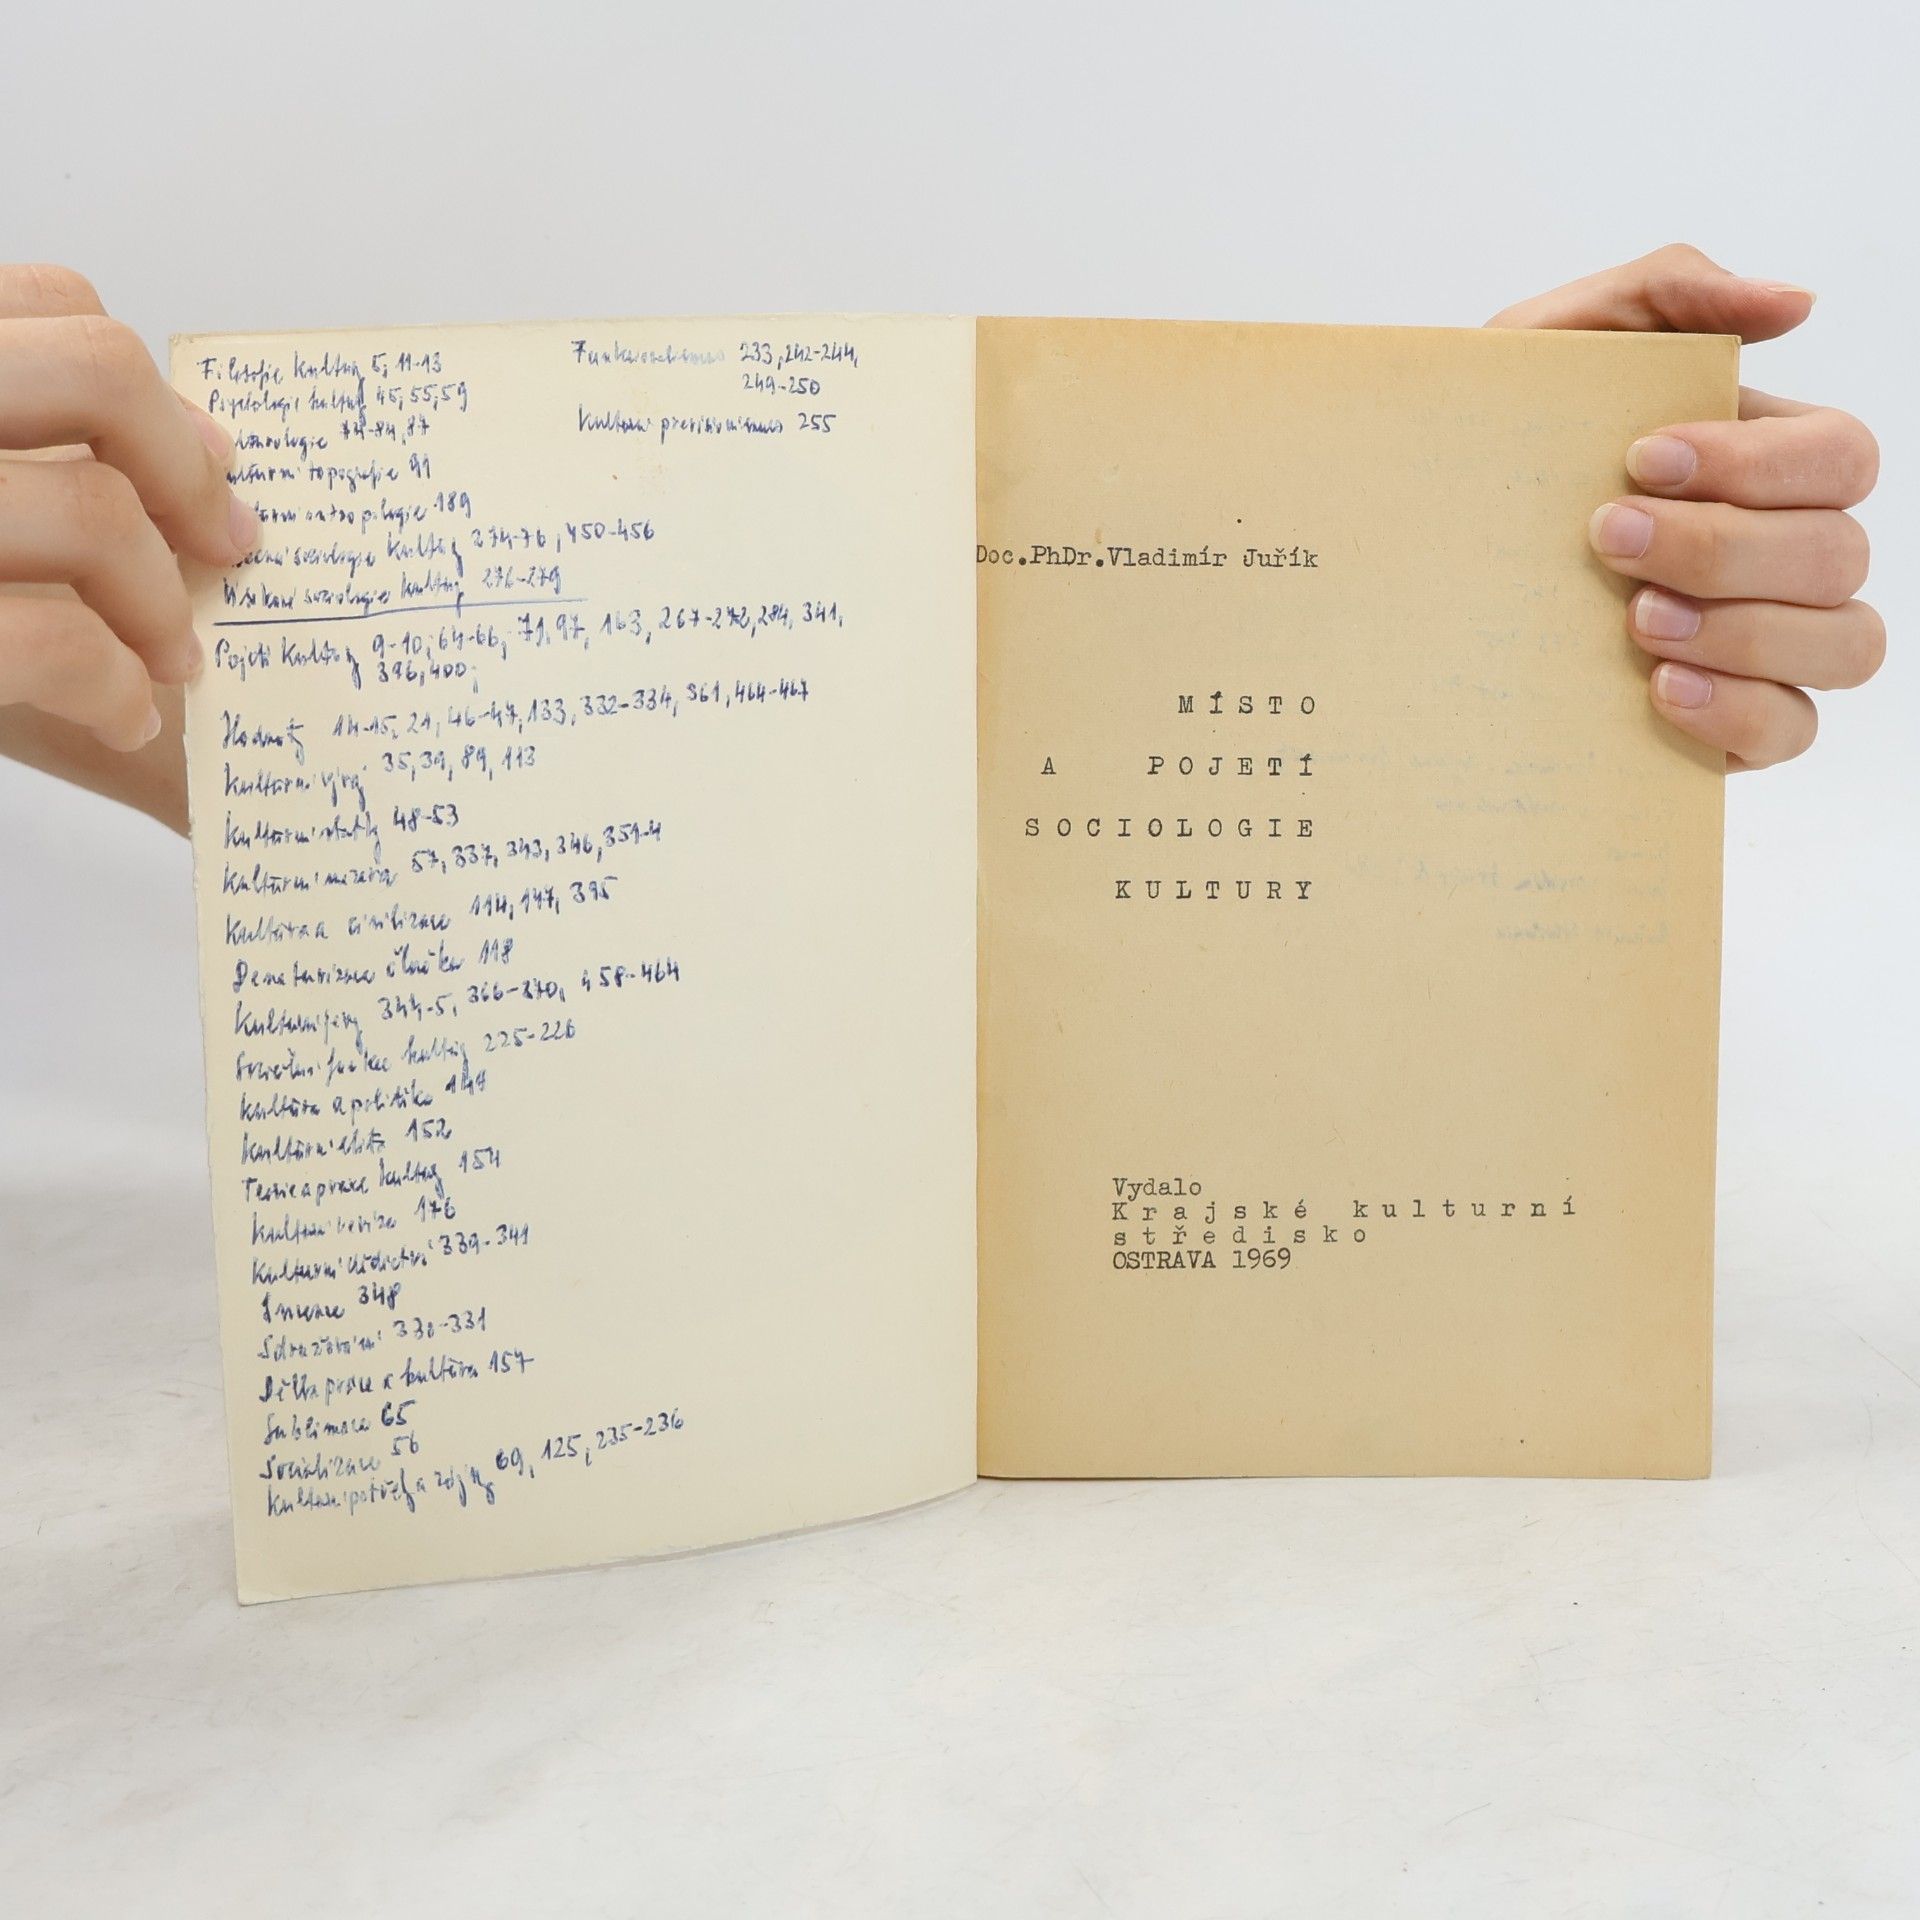 Filosofie kultury 5, 11-13
Psychologie kultury 45, 55, 59
74-84, 87
topografie 91
189
sociologie kultury 274-76, 450-456
sociologie kultury 276-279
Pojetí kultury 9-10, 64-66, 71, 97, 163, 267-272, 284, 341,
396, 400;
Hodnoty 14-15, 21, 46-47, 133, 332-334, 361, 464-467
Kulturní vývoj 35, 39, 89, 113
Kulturní statky 48-53
Kulturní 57, 337, 343, 346, 351-4
Kultura a civilizace 114, 147, 395
Denaturizace člověka 118
Kulturní jevy 344-5, 366-370, 458-464
funkce kultury 225-226
Kultura a politika 147
Kulturní elita 152
Teorie a praxe kultury 154
Kulturní 176
Kulturní dědictví 339-341
348
Sdružování 330-331
Dělba práce a kultura 157
Sublimace 65
Socializace 56
Kulturní potřeby a zájmy 69, 125, 235-236
Funkcionalismus 233, 242-244,
249-250
Kulturní 255
Doc.PhDr.Vladimír Juřík
MÍSTO
A POJETÍ
SOCIOLOGIE
KULTURY
Vydalo
Krajské kulturní
středisko
OSTRAVA 1969